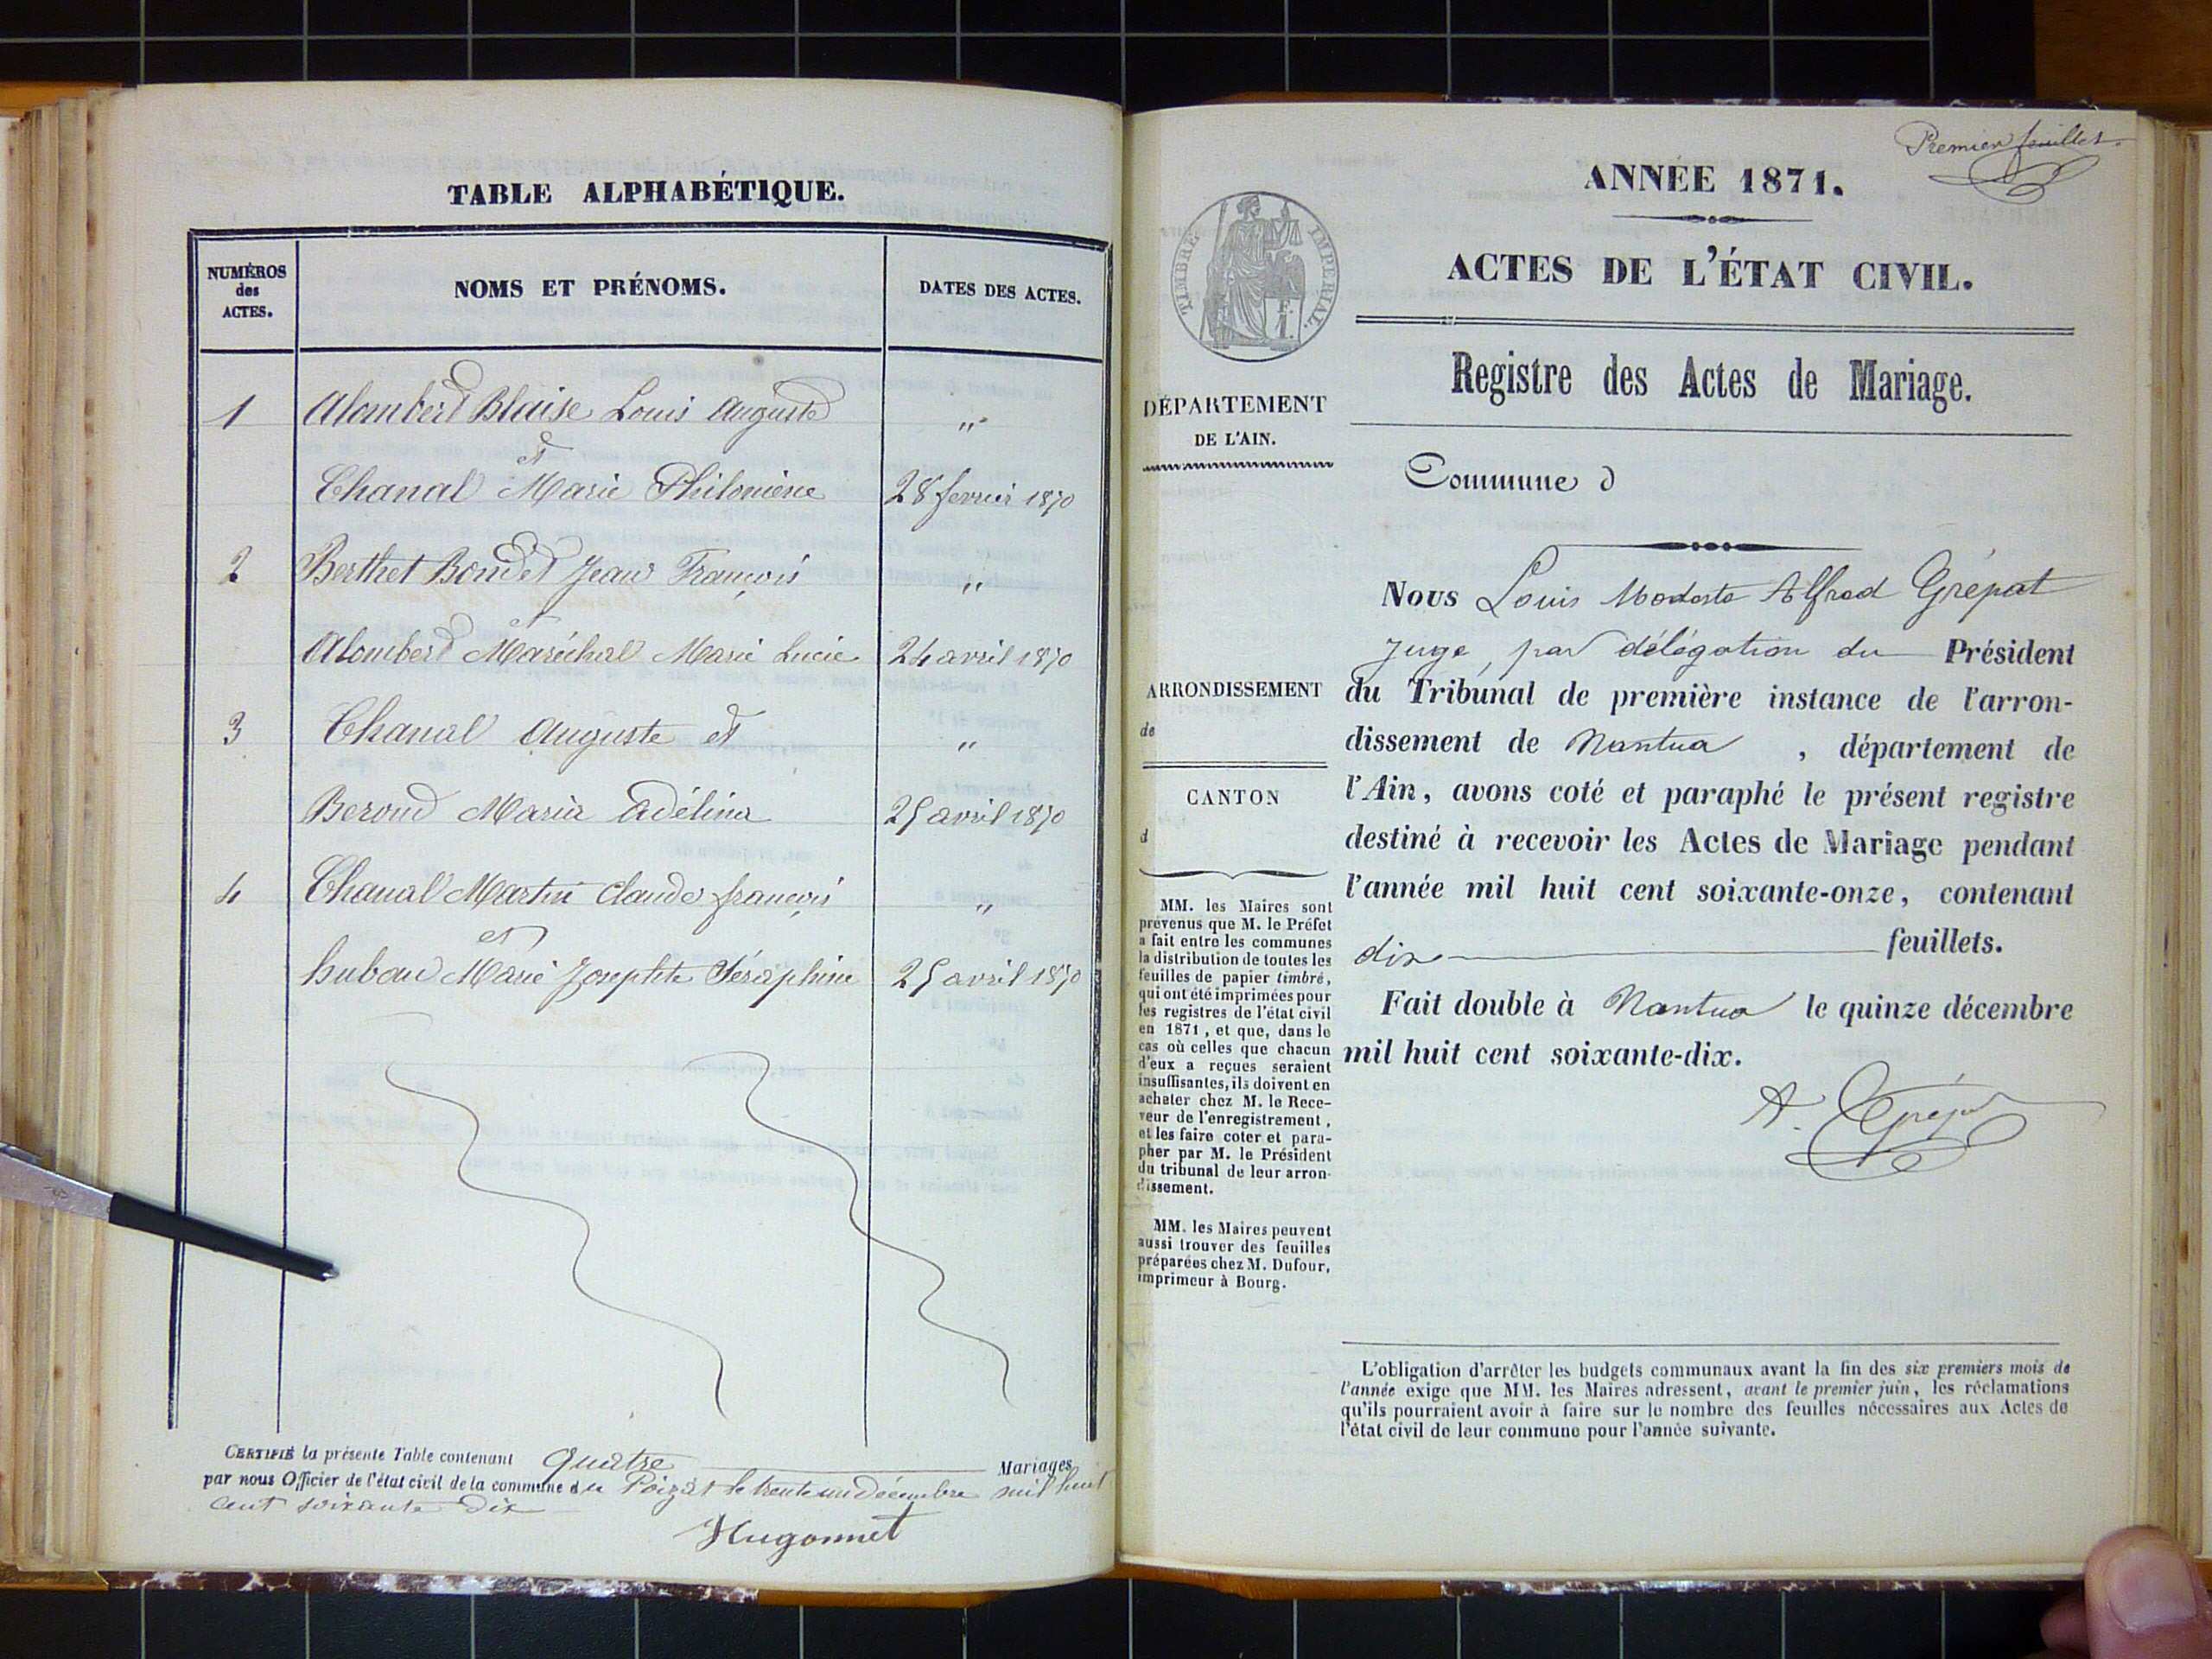 TABLE ALPHABÉTIQUE.
NUMÉROS des ACTES.
NOMS ET PRÉNOMS.
DATES DES ACTES.
1 Alombert Blaise Louis Auguste "
et
Chanal Marie Philomène 28 fevrier 1870
2 Berthet Bondet Jean François "
et
Alombert Maréchal Marie Lucie 24 avril 1870
3 Chanal Auguste et "
Beroud Maria Adélina 25 avril 1870
4 Chanal Martin Claude françois "
et
Marie Josephte Séraphine 25 avril 1870
CERTIFIÉ la présente Table contenant Quatre Mariages
par nous Officier de l'état civil de la commune du Poizat le trente un décembre mil huit
cent soixante dix
Hugonnet
Premier feuillet.
ANNÉE 1871.
ACTES DE L'ÉTAT CIVIL.
Registre des Actes de Mariage.
TIMBRE IMPERIAL.
DÉPARTEMENT
DE L'AIN.
ARRONDISSEMENT
de
CANTON
d
MM. les Maires sont
prévenus que M. le Préfet
a fait entre les communes
la distribution de toutes les
feuilles de papier timbré,
qui ont été imprimées pour
les registres de l'état civil
en 1871, et que, dans le
cas où celles que chacun
d'eux a reçues seraient
insuffisantes, ils doivent en
acheter chez M. le Rece-
veur de l'enregistrement,
et les faire coter et para-
pher par M. le Président
du tribunal de leur arron-
dissement.
MM. les Maires peuvent
aussi trouver des feuilles
préparées chez M. Dufour,
imprimeur à Bourg.
Commune d
Nous Louis Modeste Alfred Grépat
Juge, par délégation du Président
du Tribunal de première instance de l'arron-
dissement de Nantua, département de
l'Ain, avons coté et paraphé le présent registre
destiné à recevoir les Actes de Mariage pendant
l'année mil huit cent soixante-onze, contenant
dix feuillets.
Fait double à Nantua le quinze décembre
mil huit cent soixante-dix.
A. Grépat
L'obligation d'arrêter les budgets communaux avant la fin des six premiers mois de
l'année exige que MM. les Maires adressent, avant le premier juin, les réclamations
qu'ils pourraient avoir à faire sur le nombre des feuilles nécessaires aux Actes de
l'état civil de leur commune pour l'année suivante.